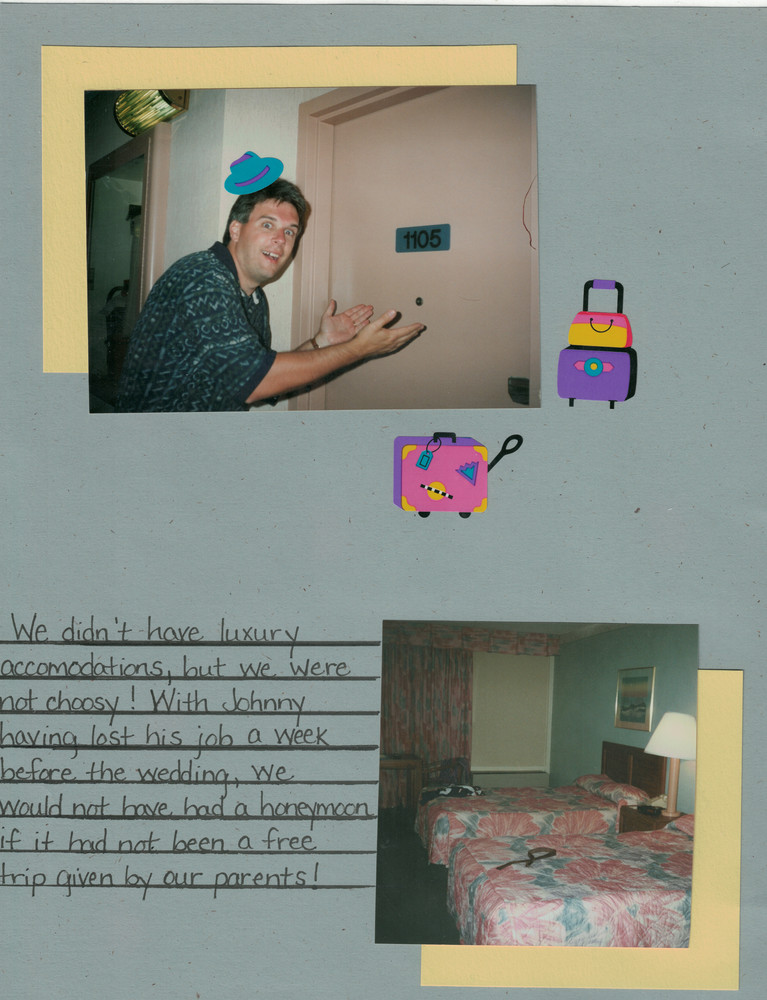 1105
We didn't have luxury
accomodations, but we were
not choosy! With Johnny
having lost his job a week
before the wedding, we
would not have had a honeymoon
if it had not been a free
trip given by our parents!